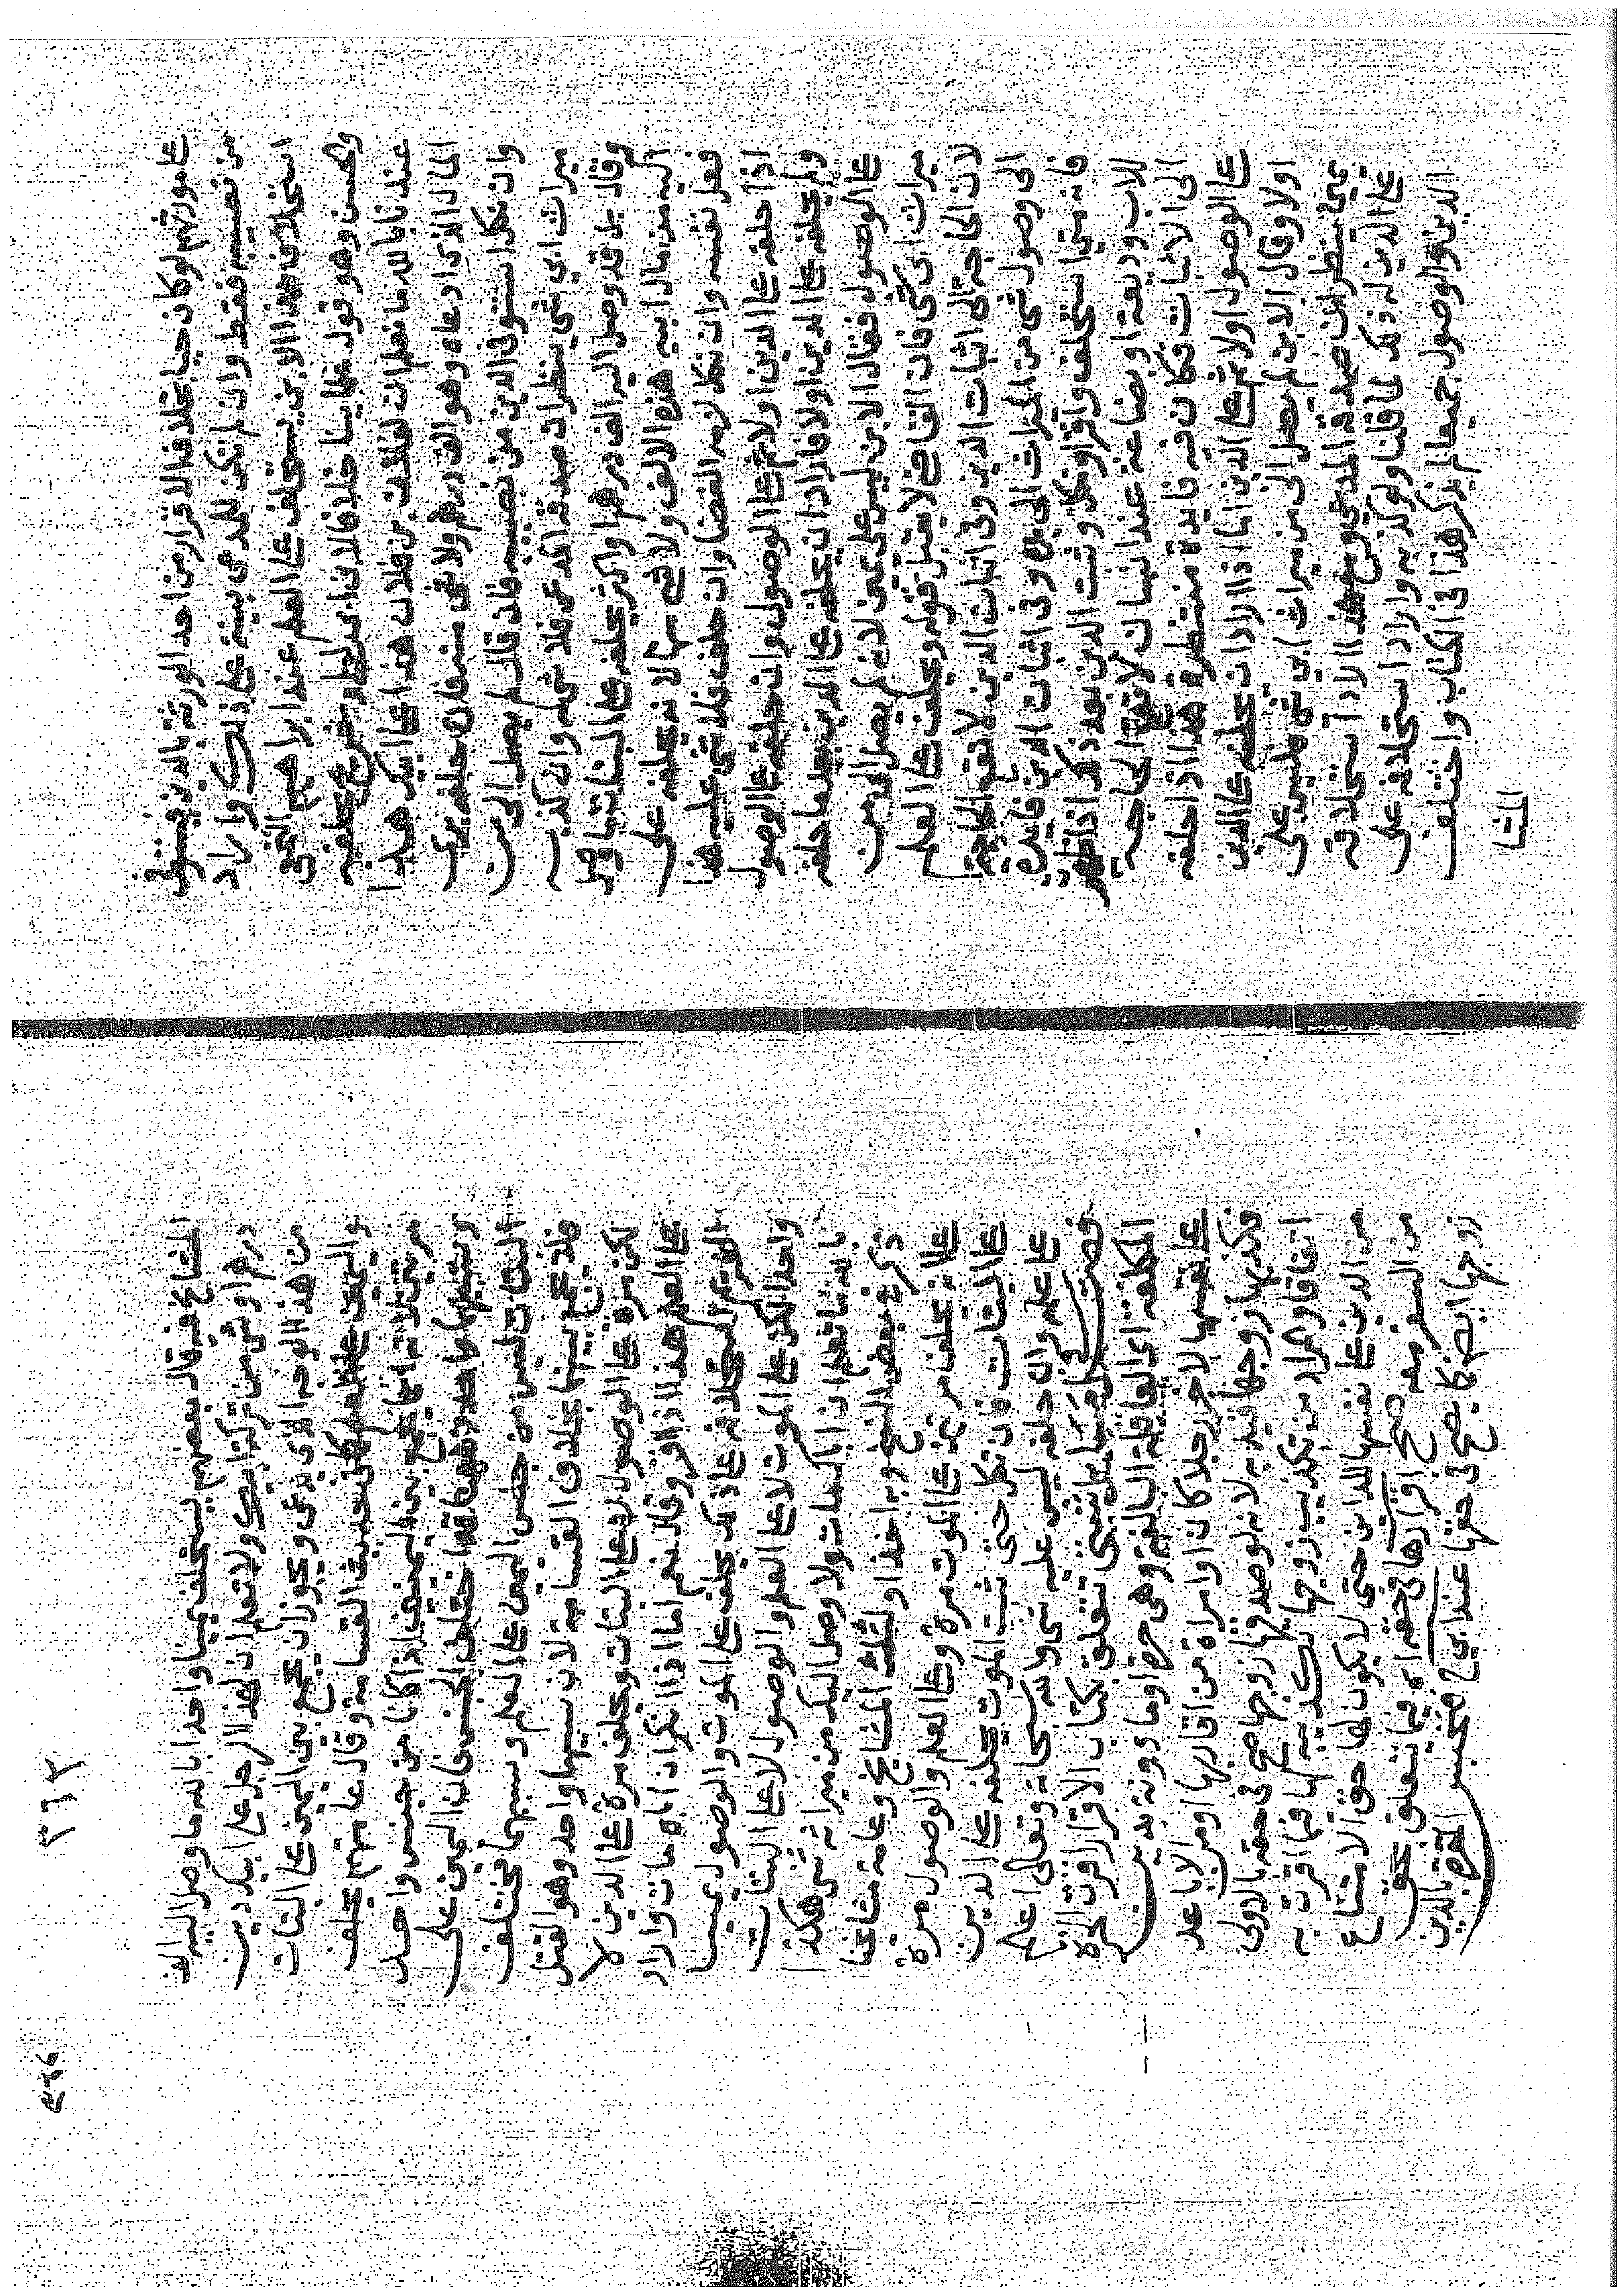 على مورثهم لو كان حيا بخلاف الاقرار من احد الورثة بالدين فيستوفى
من نصيبه فقط وان لم تكن للمدعي بينة على ذلك واراد
استحلاف هذا الابن يستحلف على العلم عند ابراهيم النخعي
والحسن وهو قول علمائنا خلافا لابن ابي ليلى و يحلفه
عندنا بالله ما تعلم ان لفلان بن فلان هذا على ابيك هذا
المال الذي ادعاه وهو الف درهم ولا شي منه فان حلف بري
وان نكل استوفى الدين من نصيبه فان قال لم يصل الي من
ميراث ابي شي ينظر ان صدقه المدعي فلا شي له وان كذبه
وقال بل قد وصل اليه الف درهم او اكثر يحلفه على البتات ما وصل
اليه من مال ابيه هذه الالف ولا شي منها لانه يحلفه على
فعل نفسه وان نكل لزمه القضا وان حلف فلا شي عليه هذا
اذا حلفه على الدين اولا ثم على الوصول وان حلفه على الوصول
ولم يحلفه على الدين اولا فاراد ان يحلفه على الدين بعد ما حلفه
على الوصول فقال الابن ليس علي يمين لانه لم يصل الي من
ميراث ابي شي فان القاضي لا يقبل قوله ويحلفه على العلم
لان الحاجة الى اثبات الدين وفي اثبات الدين لا تقع الحاجة
الى وصول شي من الميراث الى يده وفي اثبات الدين فايدة
فانه متى استحلف واقر او نكل وثبت الدين بعد ذلك اذا ظهر
للاب وديعة او بضاعة عند انسان لا تقع الحاجة
الى الاثبات فكان فيه فايدة منتظرة هذا اذا حلفه
على الوصول اولا ثم على الدين اما اذا اراد ان يحلفه على الدين
اولا وقال الابن لم يصل الي من ميراث ابي شي فليس علي
يمين ينظر ان صدقه المدعي ومع هذا اراد استحلافه
على الدين له ذلك لما قلنا ولو كذبه واراد استحلافه على
الدين والوصول جميعا لم يذكر هذا في الكتاب واختلف
المشا
المشايخ فيه قال بعضهم يستحلف يمينا واحدا بالله ما وصل اليه الف
درهم او شي من تركة ابيك ولا تعلم ان لهذا الرجل على ابيك دين
من هذا الوجه الذي يدعي ويجوز ان يجمع بين اليمين على البتات
واليمين على العلم كما في حديث القسامة وقال عامتهم يحلف
مرتين لانه انما يجمع بين اليمينين اذا كانا من جنس واحد
وسببهما واحد وههنا قد اختلف الجنس فان اليمين على
البتات ليس من جنس اليمين على العلم وسببهما مختلف
فلا يجمع بينهما بخلاف القسامة لان سببهما واحد وهو القتل
لكن مرة على الوصول على البتات ويحلف مرة على الدين لا
على العلم هذا اذا اقر وقال نعم اما اذا انكر ان اباه مات واراد
الغريم استحلافه على ذلك يحلف على الموت والوصول يمينا
واحدا لكن على الموت لا على العلم والوصول لا على البتات
بالله ما تعلم ان اباك مات ولا وصل اليك من ميراثه شي هكذا
ذكر في بعض النسخ وبه اخذ اولئك المشايخ وعامة مشايخنا
على انه يحلف مرتين على الموت مرة وعلى العلم والوصول مرة
على البتات فان نكل حتى ثبت الموت يحلفه على الدين
على علمه وان حلف ليس عليه شي والله سبحانه وتعالى اعلم
فصل في مسايل شتى تتعلق بكتاب الاقرار اقرت الحرة
المكلفة اي العاقلة البالغة وهي حرة او ماذونة بدين
على نفسها لاخر رجلا كان او امراة من اقاربها او من الاباعد
فكذبها زوجها فيه لانه لو صدقها زوجها صح في حقه بالاولى
اتفاقا والمراد من تكذيب زوجها تكذيبه لها فيما اقرت به
من الدين على نفسها للداين حتى لا يكون لها حق الامتناع
من السفر معه صح اقرارها في حقه اي فيما يتعلق بحق
زوجها ايضا كما يصح في حقها عند ابي ح فتحبس المقرة بالدين